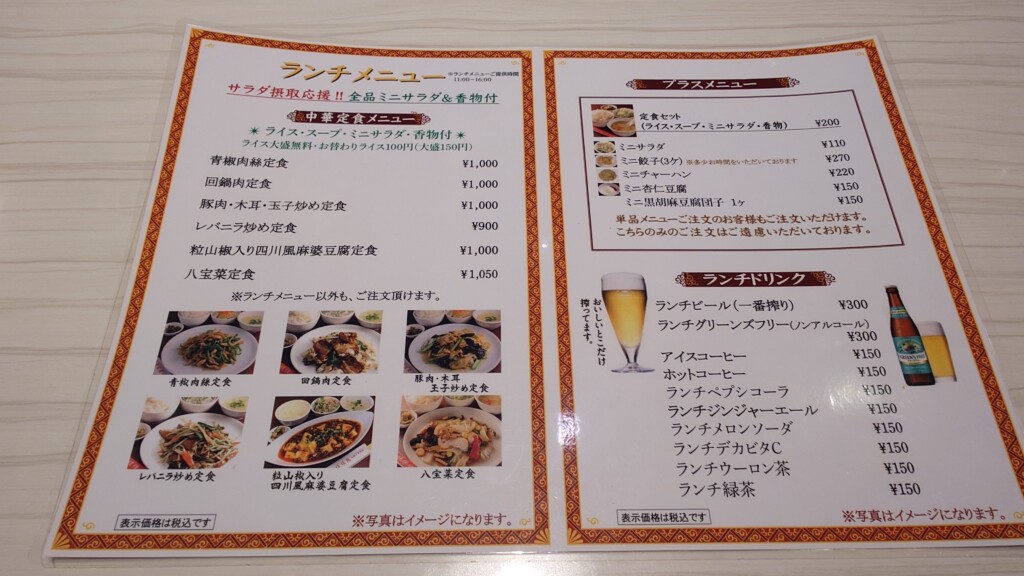 ランチメニュー ※ランチメニューご提供時間
11:00~16:00
サラダ摂取応援!! 全品ミニサラダ&香物付
中華定食メニュー
✴ ライス・スープ・ミニサラダ・香物付 ✴
ライス大盛無料・お替わりライス100円(大盛150円)
青椒肉絲定食 ¥1,000
回鍋肉定食 ¥1,000
豚肉・木耳・玉子炒め定食 ¥1,000
レバニラ炒め定食 ¥900
粒山椒入り四川風麻婆豆腐定食 ¥1,000
八宝菜定食 ¥1,050
※ランチメニュー以外も、ご注文頂けます。
青椒肉絲定食
回鍋肉定食
豚肉・木耳
玉子炒め定食
レバニラ炒め定食
粒山椒入り
四川風麻婆豆腐定食
八宝菜定食
表示価格は税込です
※写真はイメージになります。
プラスメニュー
定食セット
(ライス・スープ・ミニサラダ・香物) ¥200
ミニサラダ ¥110
ミニ餃子(3ケ) ※多少お時間をいただいております ¥270
ミニチャーハン ¥220
ミニ杏仁豆腐 ¥150
ミニ黒胡麻豆腐団子 1ヶ ¥150
単品メニューご注文のお客様もご注文いただけます。
こちらのみのご注文はご遠慮いただいております。
ランチドリンク
おいしいとこだけ
搾ってます。
ランチビール(一番搾り) ¥300
ランチグリーンズフリー(ノンアルコール)
¥300
アイスコーヒー ¥150
ホットコーヒー ¥150
ランチペプシコーラ ¥150
ランチジンジャーエール ¥150
ランチメロンソーダ ¥150
ランチデカビタC ¥150
ランチウーロン茶 ¥150
ランチ緑茶 ¥150
表示価格は税込です
※写真はイメージになります。